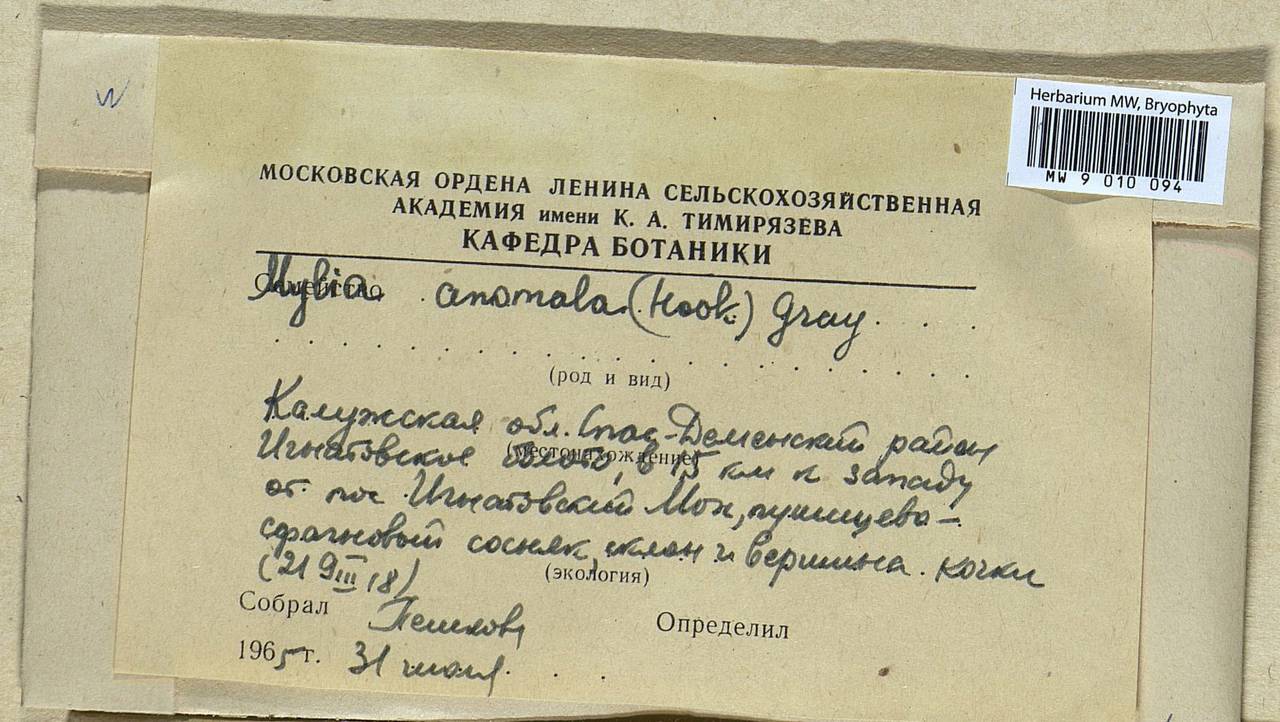 W
Herbarium MW, Bryophyta
MW 9 010 094
МОСКОВСКАЯ ОРДЕНА ЛЕНИНА СЕЛЬСКОХОЗЯЙСТВЕННАЯ
АКАДЕМИЯ имени К. А. ТИМИРЯЗЕВА
КАФЕДРА БОТАНИКИ
Семейство
Mylia anomala (Hook.) Gray
(род и вид)
Калужская обл. Спас-Деменский район
(местонахождение)
Игнатовское болото, в 15 км к западу
от пос. Игнатовский Мох, пушицево-
сфагновый сосняк, склон и вершина кочки
(экология)
(21 9 III 18)
Собрал Пешкова Определил
1965 г. 31 июля